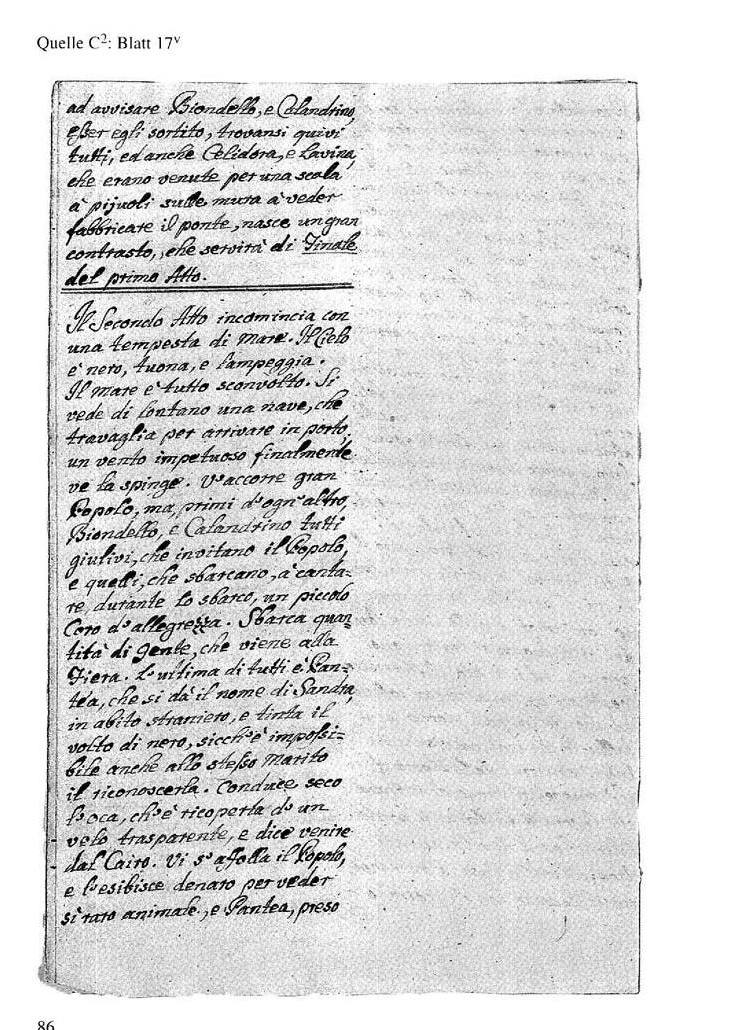 Quelle C²: Blatt 17ᵛ
ad avvisare Biondello, e Calandrino,
esser egli sortito, trovansi quivi
tutti, ed anche Celidora, e Lavina,
che erano venute per una scala
à pijuoli sulle mura à veder
fabbricare il ponte, nasce un gran
contrasto, che servirà di Finale
del primo Atto.
Il Secondo Atto incomincia con
una tempesta di Mare. Il Cielo
è nero, tuona, e lampeggia.
Il mare è tutto sconvolto. Si
vede di lontano una nave, che
travaglia per arrivare in porto,
un vento impetuoso finalmente
ve la spinge. V'accorre gran
Popolo, ma, primi d'ogn'altro,
Biondello, e Calandrino tutti
giulivi, che invitano il Popolo,
e quelli, che sbarcano, à canta=
re, durante lo sbarco, un piccolo
Coro d'allegrezza. Sbarca quan=
tità di Gente, che viene alla
Fiera. L'ultima di tutti è Pan=
tea, che si dà il nome di Sandra,
in abito straniero, e tinta il
volto di nero, sicch'è impossi=
bile anche allo stesso Marito
il riconoscerla. Conduce seco
l'oca, ch'è ricoperta d'un
velo trasparente, e dice venire
dal Cairo. Vi s'affolla il Popolo,
e l'esibisce denaro per veder
sì raro animale, e Pantea, preso
86